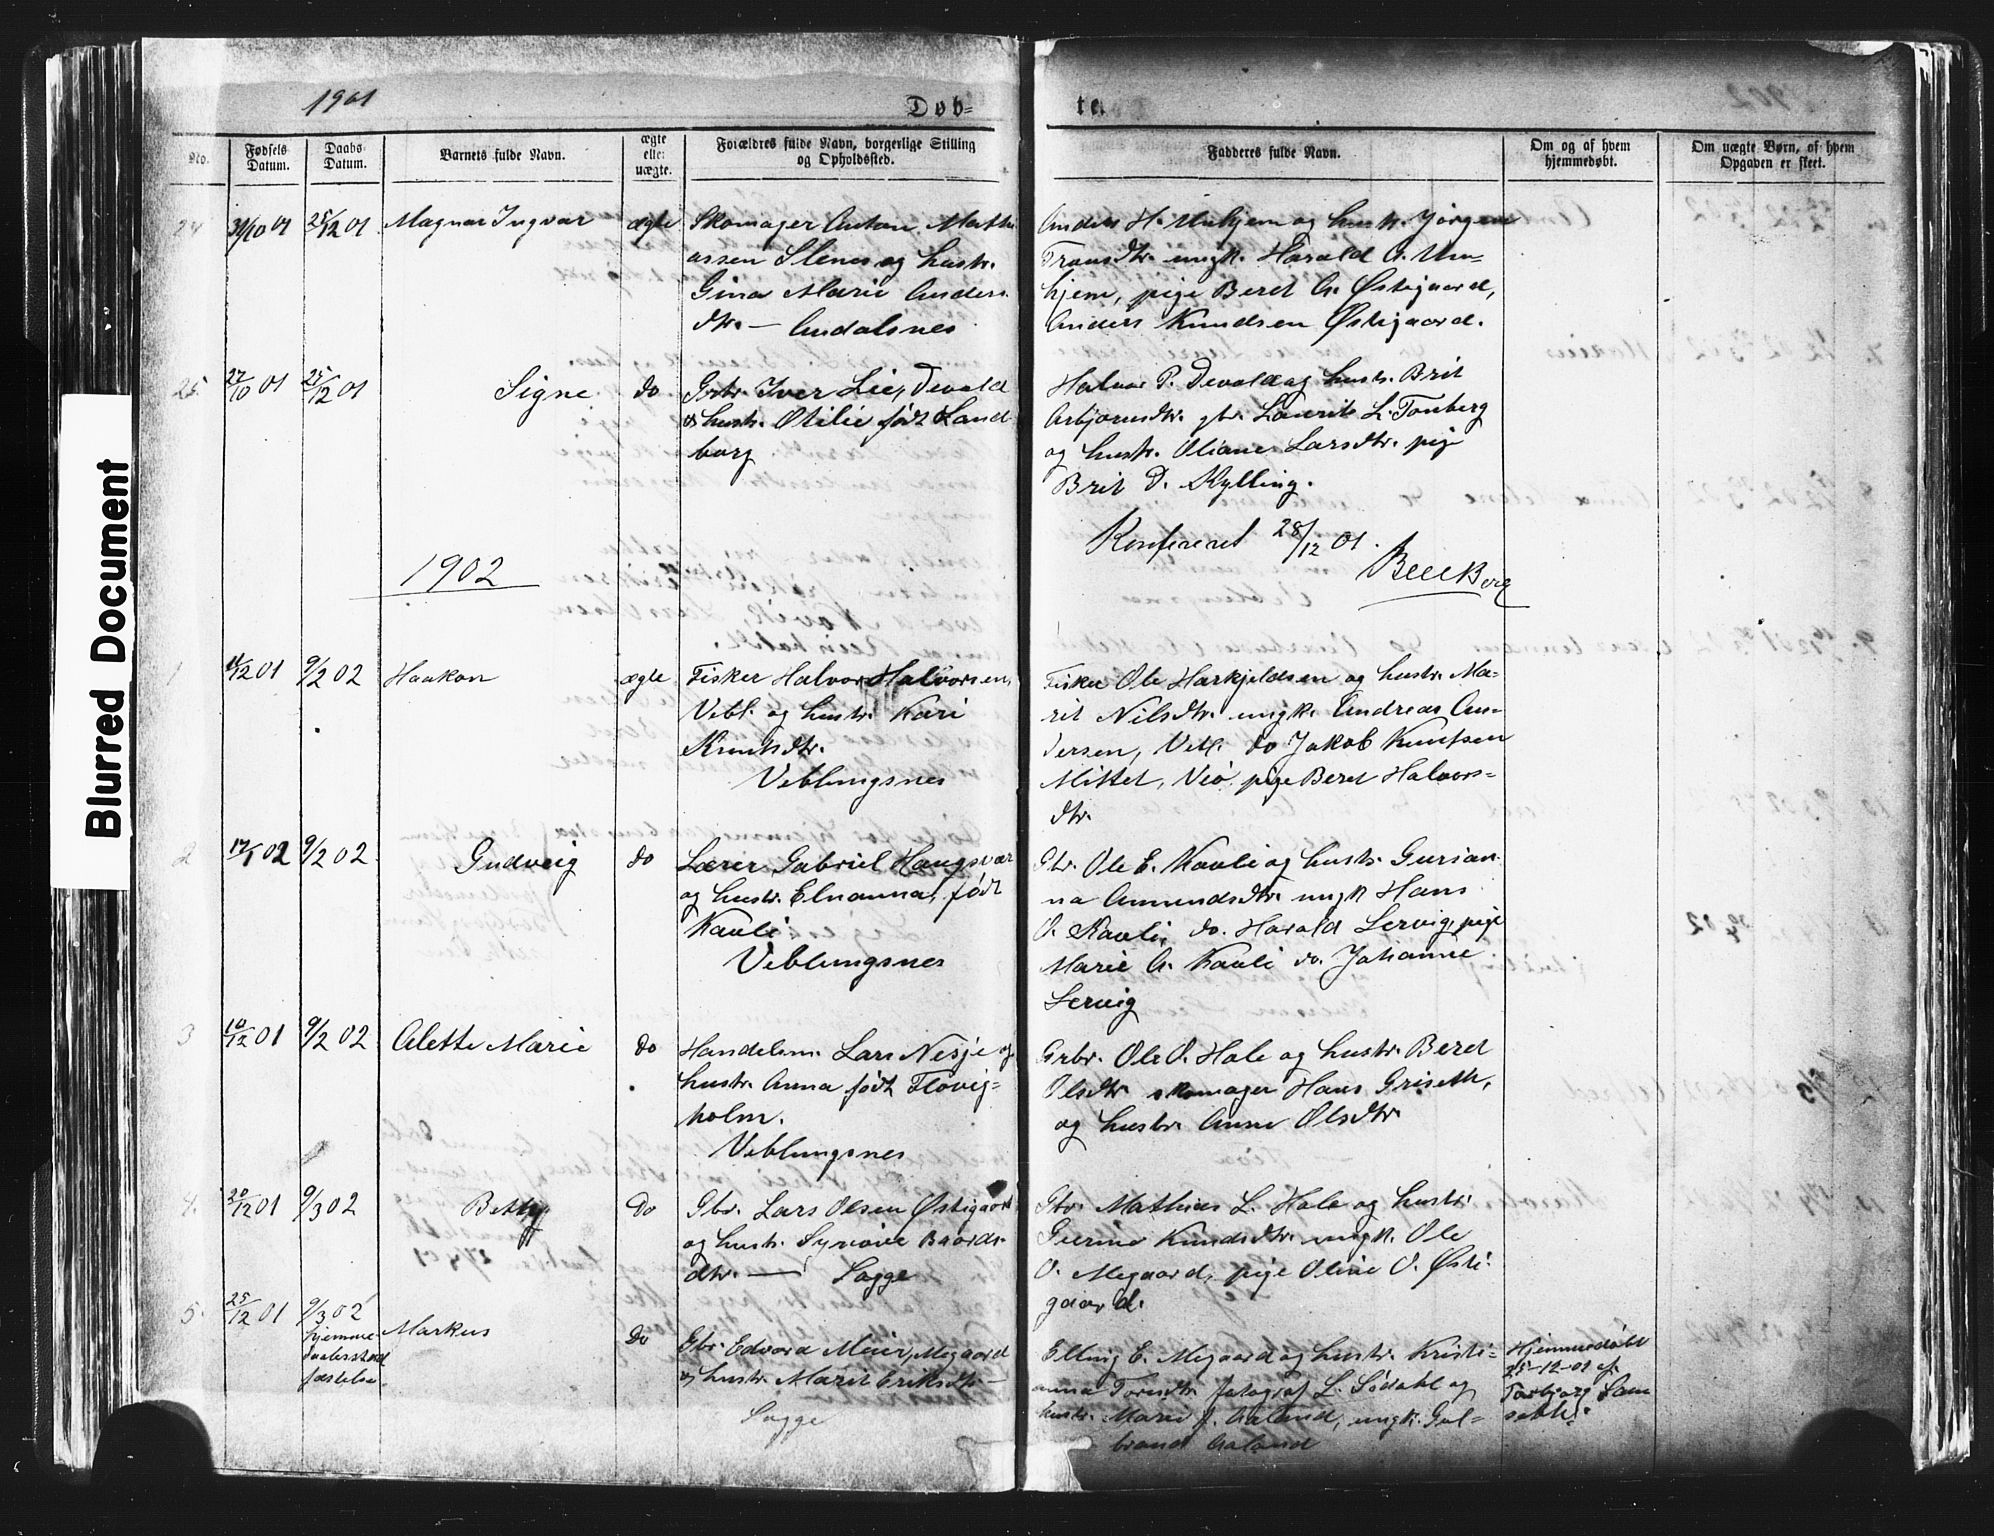 Blurred Document
1901
Døb=
te.
No.
Fødsels Datum.
Daabs Datum.
Barnets fulde Navn.
ægte eller uægte.
Forældres fulde Navn, borgerlige Stilling og Opholdssted.
Fadderes fulde Navn.
Om og af hvem hjemmedøbt.
Om uægte Børn, af hvem Opgaven er skeet.
24 31/10 01 25/12 01 Magnar Ingvar ægte
Skomager Anton Mathi
assen Stenes og hustr.
Gina Marie Anders
dtr. — Andalsnes
Anders H. Unhjem og hustr. Jørgen
Transdtr. ungk. Harald A. Un=
hjem, pige Beret A. Østigaard,
Anders Knudsen Østigaard.
25. 27/10 01 25/12 01 Signe do
Gbr. Iver Lie, Devold
og hustr. Otilie født Land
borg
Halvor P. Devold og hustr. Brit
Asbjørnsdtr. gbr. Laurits L. Tonberg
og hustr. Oliane Larsdtr. pige
Brit D. Kylling.
Konfereret 28/12 01.
1902
1 11/12 01 9/2 02 Haakon ægte
Fisker Halvor Halvorsen,
Vebl. og hustr. Kari
Knutsdtr.
Veblungsnes
Fisker Ole Harkjeldsen og hustr. Ma-
rit Nilsdtr. ungk. Andreas An-
dersen, Vebl. do Jakob Knutsen
Mittet, Veø, pige Beret Halvors=
dtr.
2 17/1 02 9/2 02 Gudveig do
Lærer Gabriel Haugsvær
og hustr. Elnanna, født
Kavli
Veblungsnes
Gbr. Ole E. Kavli og hustr. Gurian
na Amundsdtr. ungk Hans
O. Kavli, do. Harald Lervig, pige
Marie A. Kavli do. Johanne
Lervig
3 10/12 01 9/2 02 Alette Marie do
Handelsm. Lars Nesje og
hustr. Anna født Flovig=
holm.
Veblungsnes
Grbr. Ole O. Hole og hustr. Beret
Olsdtr. skomager Hans Griseth,
og hustr. Anne Olsdtr
4. 20/12 01 9/3 02 Betty do
Gbr. Lars Olsen Østigaard
og hustr. Synøve Baards-
dtr. — Sogge
Gbr. Mathias L. Hole og hustr.
Gurine Knudsdtr. ungk. Ole
O. Megaard, pige Oline O. Østi-
gaard.
5. 25/12 01 9/3 02 Markus do
hjemme
daabsstad
fæstelse.
Gbr. Edvard Meier, Megaard
og hustr. Marit Eriksdtr. —
Sogge
Elling E. Megaard og hustr. Kristi=
anna Toresdtr. fotograf L. Sødahl og
hustr. Marie f. Aaland, ungk. Gul=
brand Aaland
Hjemmedøbt
25-12-01 af
Torbjørg Sam